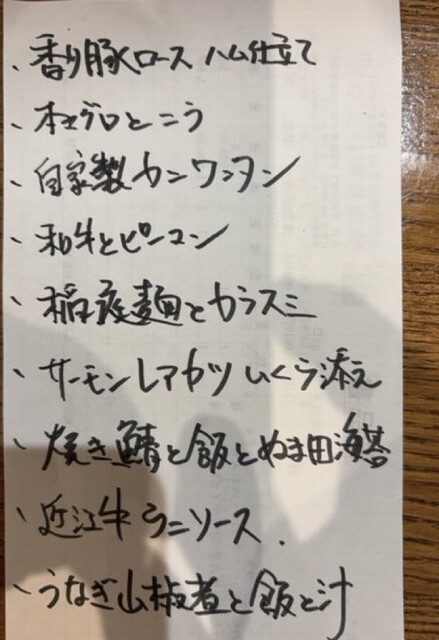 、香り豚ロース ハム仕立て
、本マグロとこう
、自家製カンワンタン
、和牛とピーマン
、稲庭麺とカラスミ
、サーモンレアカツ いくら添え
、焼き鯖と飯とぬま田海苔
、近江牛 ウニソース.
、うなぎ山椒煮と飯と汁